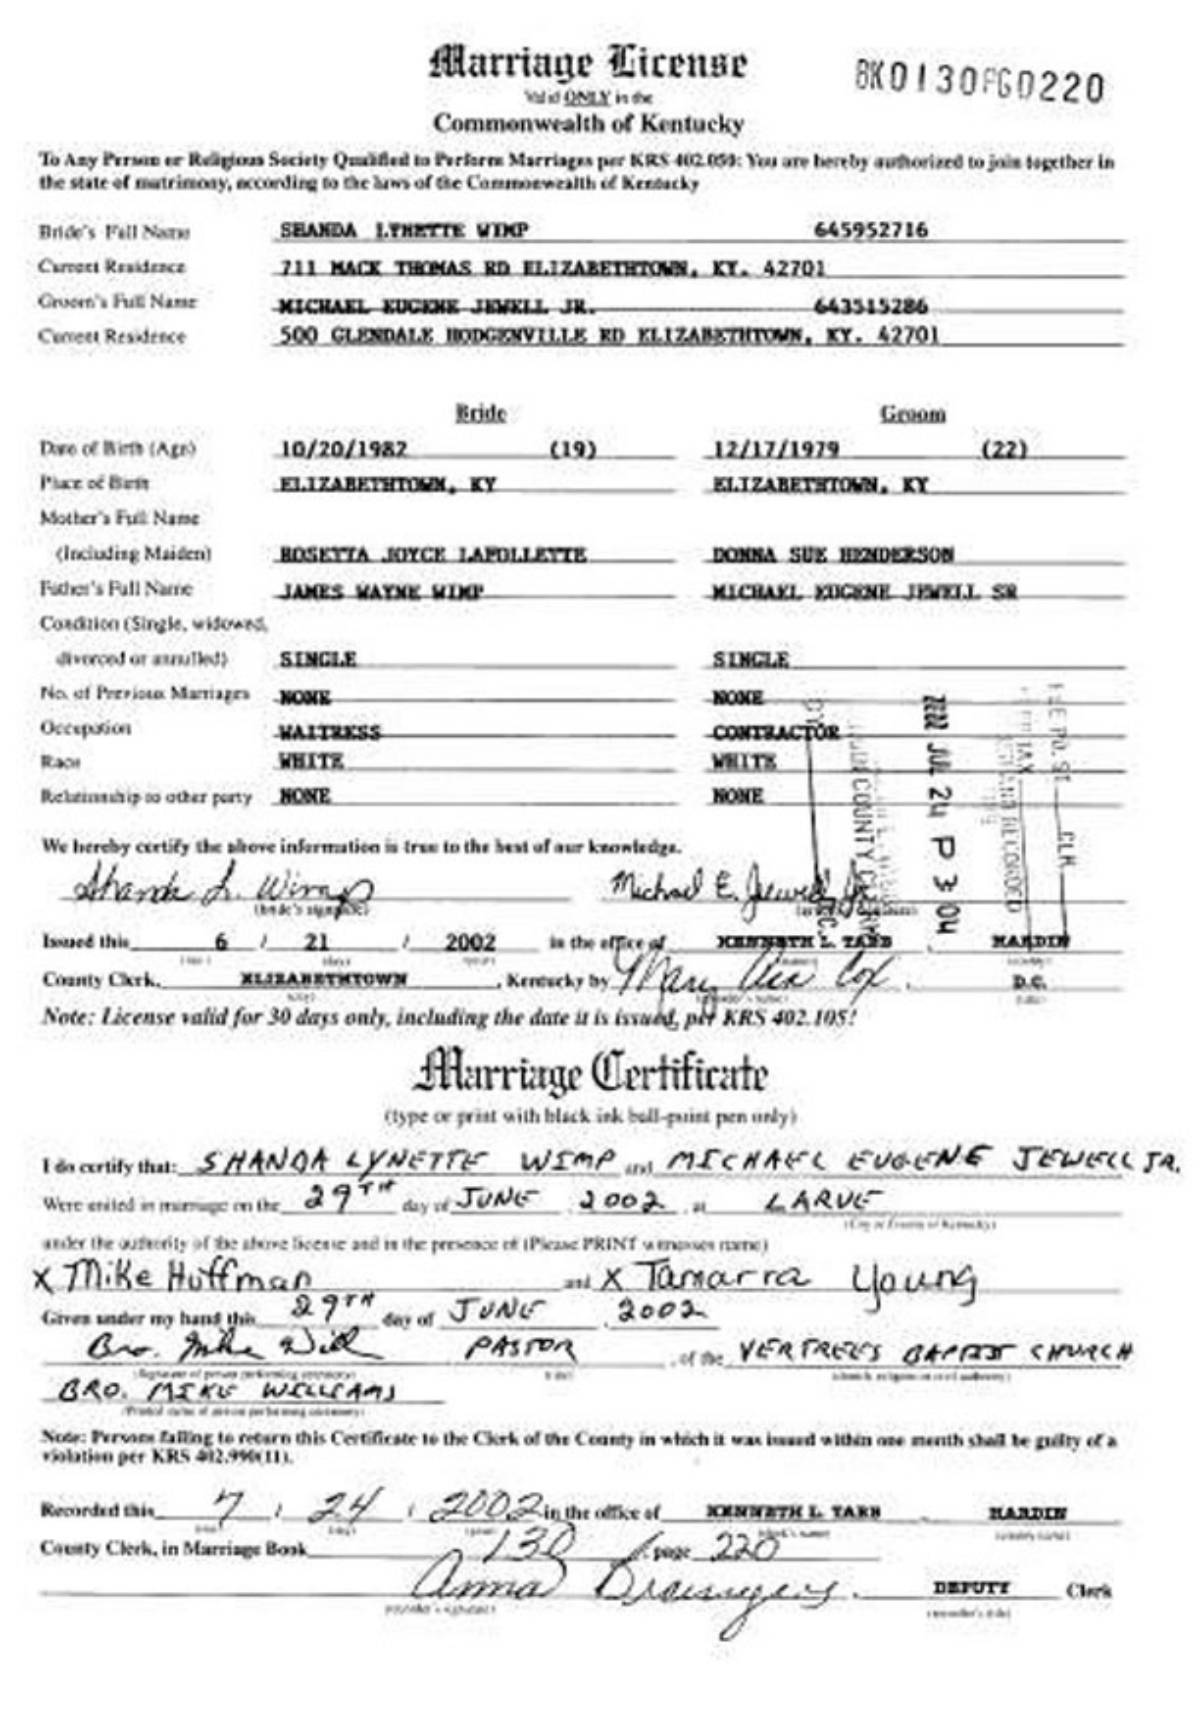 Marriage License
BK0130PG0220
Valid ONLY in the
Commonwealth of Kentucky
To Any Person or Religious Society Qualified to Perform Marriages per KRS 402.050: You are hereby authorized to join together in
the state of matrimony, according to the laws of the Commonwealth of Kentucky
Bride's Full Name SHANDA LYNETTE WIMP 645952716
Current Residence 711 MACK THOMAS RD ELIZABETHTOWN, KY. 42701
Groom's Full Name MICHAEL EUGENE JEWELL JR. 643515286
Current Residence 500 GLENDALE HODGENVILLE RD ELIZABETHTOWN, KY. 42701
Bride Groom
Date of Birth (Age) 10/20/1982 (19) 12/17/1979 (22)
Place of Birth ELIZABETHTOWN, KY ELIZABETHTOWN, KY
Mother's Full Name
(Including Maiden) ROSETTA JOYCE LAFOLLETTE DONNA SUE HENDERSON
Father's Full Name JAMES WAYNE WIMP MICHAEL EUGENE JEWELL SR
Condition (Single, widowed,
divorced or annulled) SINGLE SINGLE
No. of Previous Marriages NONE NONE
Occupation WAITRESS CONTRACTOR
Race WHITE WHITE
Relationship to other party NONE NONE
JUL 24 P 3 04
We hereby certify the above information is true to the best of our knowledge.
Shanda L. Wimp Michael E. Jewell Jr.
(bride's signature)
Issued this 6 / 21 / 2002 in the office of KENNETH L. TABB HARDIN
County Clerk, ELIZABETHTOWN, Kentucky by Mary Ann Cox, D.C.
Note: License valid for 30 days only, including the date it is issued, per KRS 402.105!
Marriage Certificate
(type or print with black ink ball-point pen only)
I do certify that: SHANDA LYNETTE WIMP and MICHAEL EUGENE JEWELL JR.
Were united in marriage on the 29TH day of JUNE 2002, at LARUE
(City or County of Kentucky)
under the authority of the above license and in the presence of (Please PRINT witnesses name)
X Mike Huffman and X Tamarra Young
Given under my hand this 29TH day of JUNE, 2002
Bro. Mike Will PASTOR, of the VERTREES BAPTIST CHURCH
(Signature of person performing ceremony) (title)
BRO. MIKE WILLIAMS
(Printed name of person performing ceremony)
Note: Persons failing to return this Certificate to the Clerk of the County in which it was issued within one month shall be guilty of a
violation per KRS 402.990(11).
Recorded this 7 / 24 / 2002 in the office of KENNETH L. TABB HARDIN
County Clerk, in Marriage Book 130, page 220
Anna DEPUTY Clerk
(recorder's signature) (recorder's title)